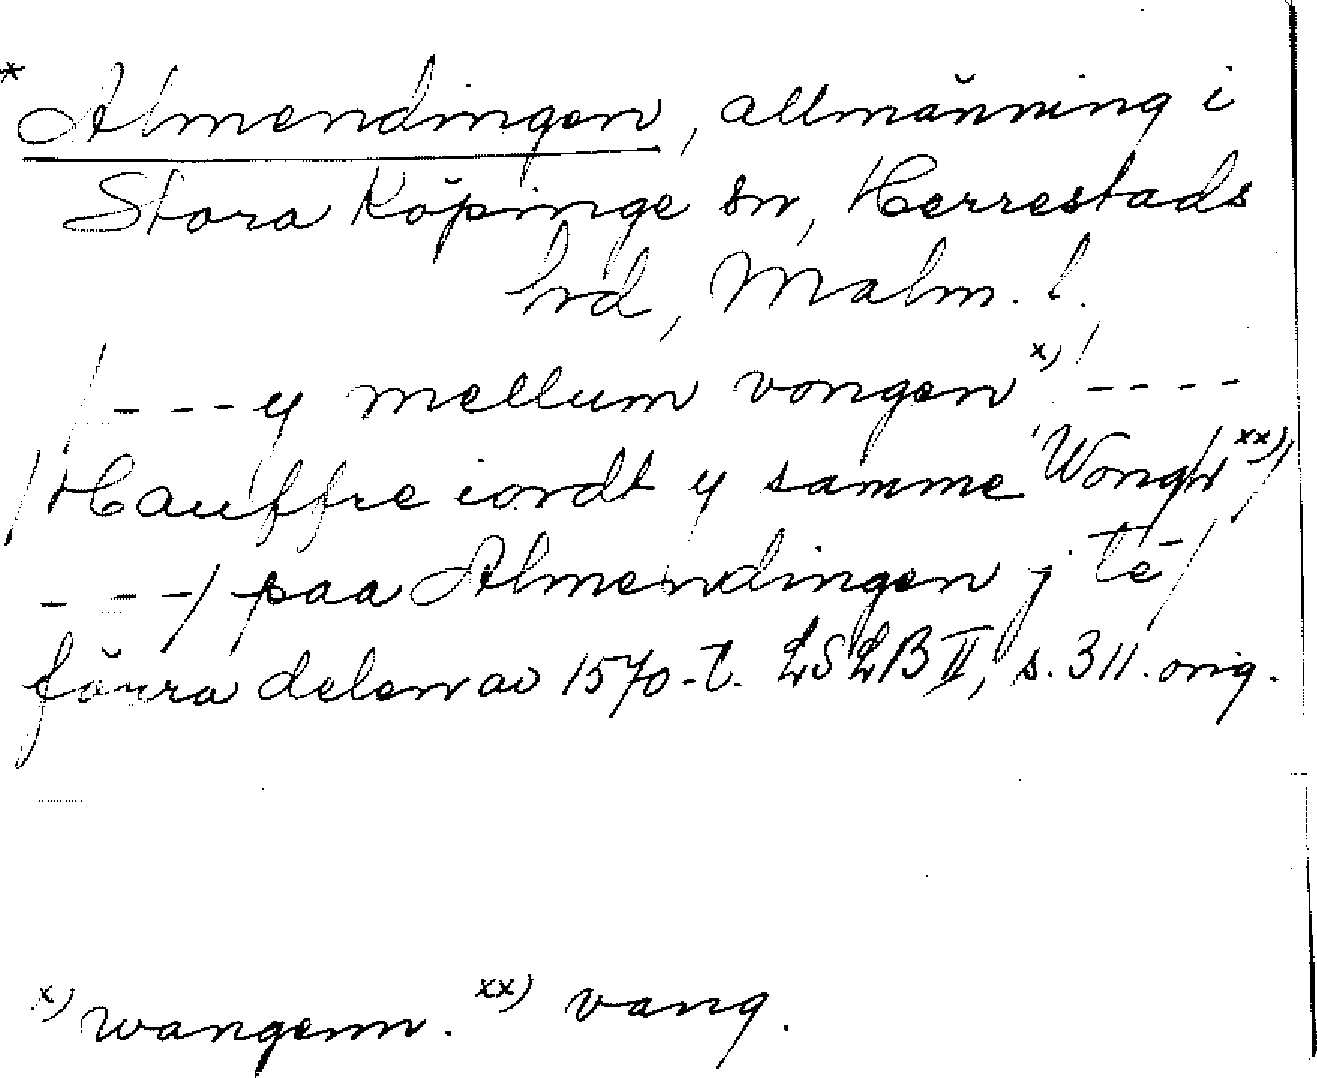 * Almendingen, allmänning i
Stora Köpinge sn, Herrestads
hrd, Malm. l.
/---y mellum vongen x)/ ----
/Hauffre iordt y samme Wongh xx)/
---/ paa Almendingen j te/
förra delen av 1570-t. LSLB II, s. 311. orig.
x) wangenn. xx) vang.